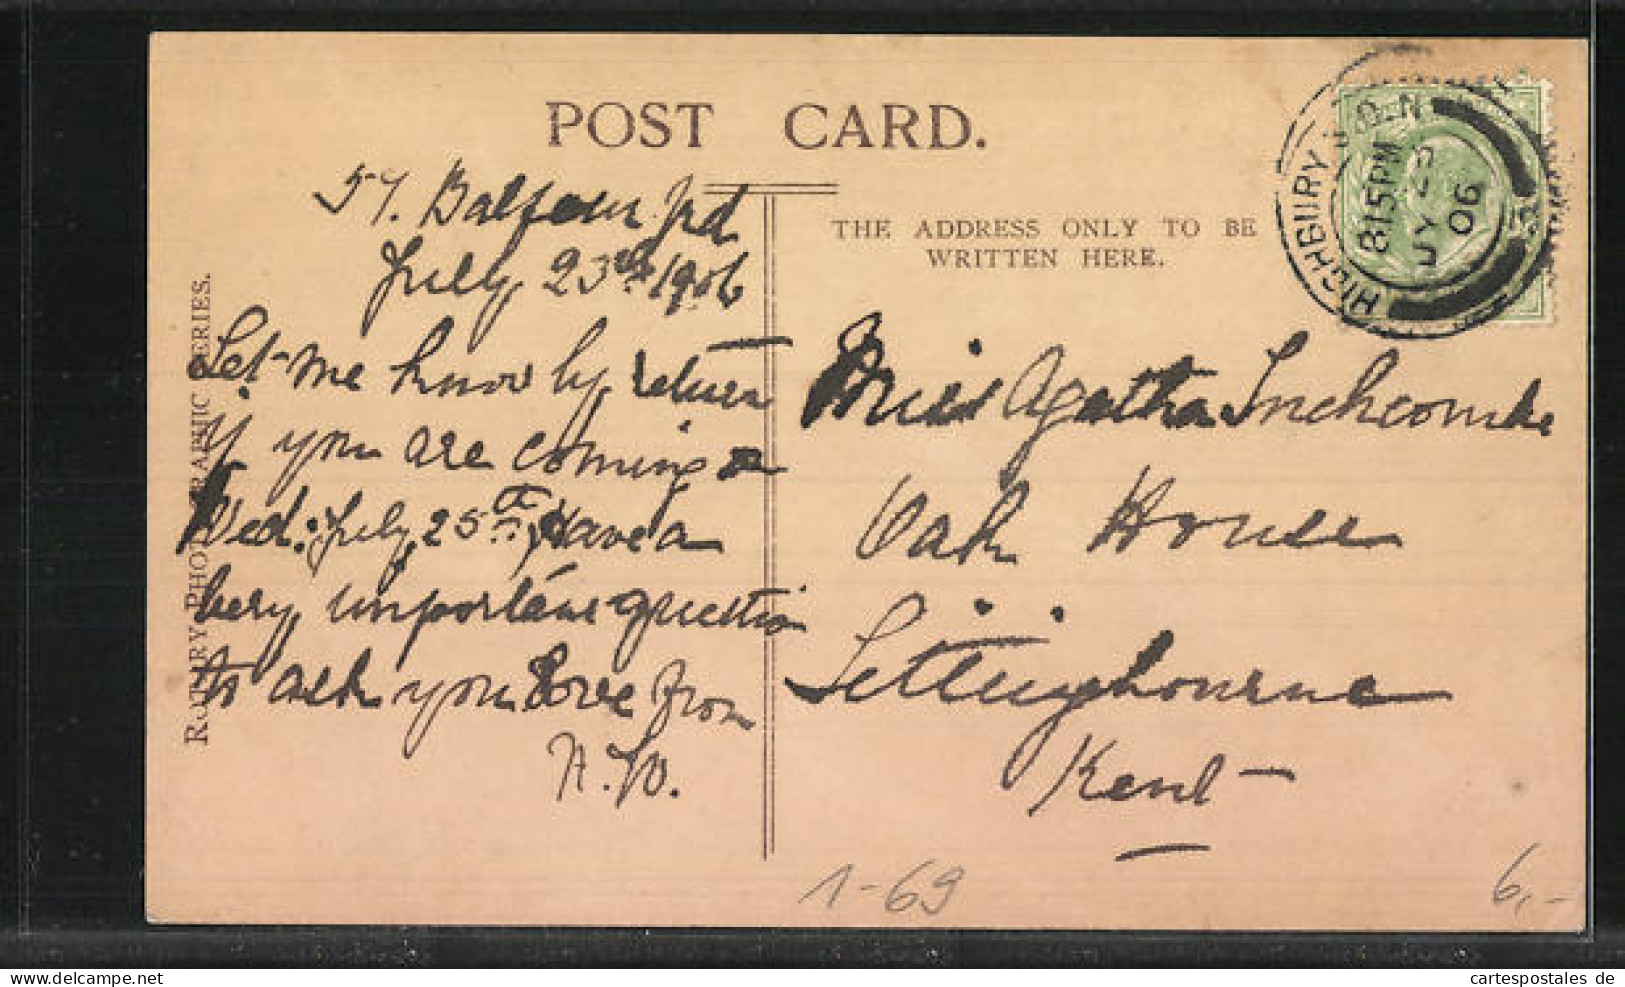 POST CARD.
57. Balfour rd
July 23rd 1906
Let me know by return
if you are coming
Wed: July 25th, Have a
very important question
to ask you Love from
THE ADDRESS ONLY TO BE
WRITTEN HERE.
Miss Agatha Inchcombe
Oak House
Sittingbourne
Kent
HIGHBURY
8 15 PM
JY 23
06
ROTARY PHOTOGRAPHIC SERIES.
1-69
6,-
cartespostales de